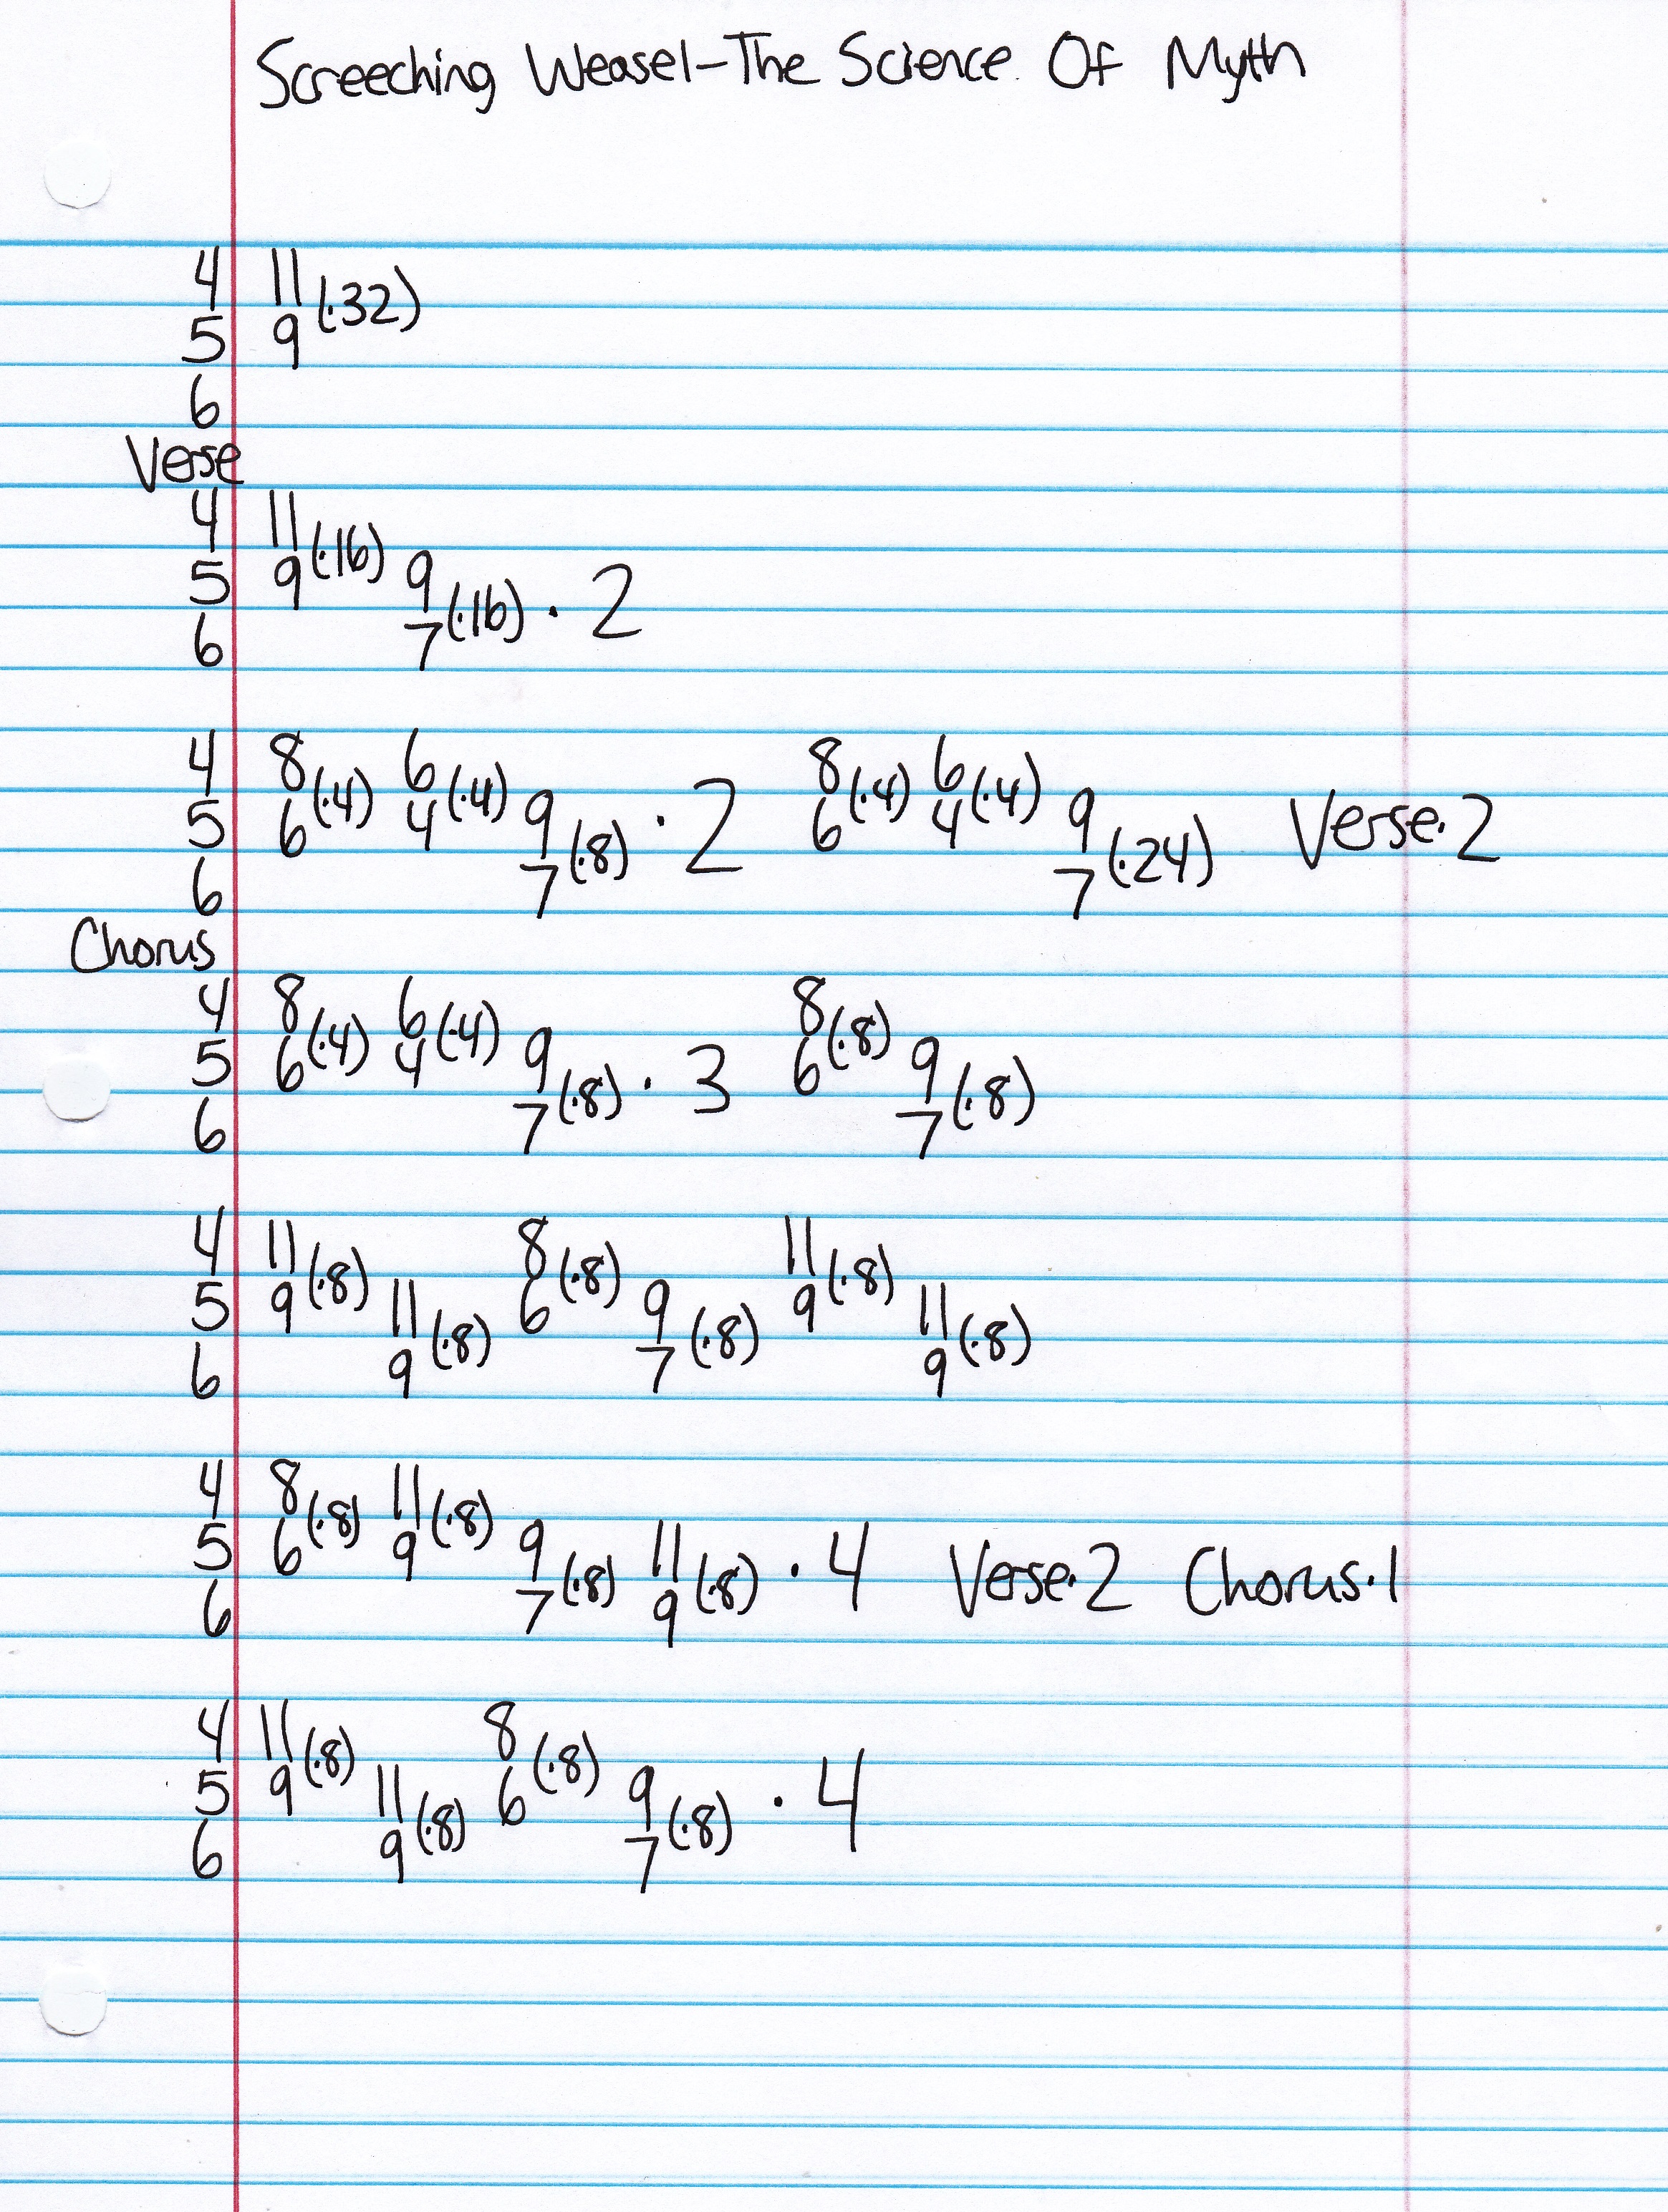 Screeching Weasel-The Science Of Myth
4 11
5 9 (·32)
6
Verse
4 11
5 9 (·16) 9
6 7 (·16) · 2
4 8 6 8 6
5 6 (·4) 4 (·4) 9 · 2 6 (·4) 4 (·4) 9 Verse·2
6 7 (·8) 7 (·24)
Chorus
4 8 6 8
5 6 (·4) 4 (·4) 9 · 3 6 (·8) 9
6 7 (·8) 7 (·8)
4 11 8 11
5 9 (·8) 11 6 (·8) 9 9 (·8) 11
6 9 (·8) 7 (·8) 9 (·8)
4 8 11
5 6 (·8) 9 (·8) 9 11 · 4 Verse·2 Chorus·1
6 7 (·8) 9 (·8)
4 11 8
5 9 (·8) 11 6 (·8) 9 · 4
6 9 (·8) 7 (·8)